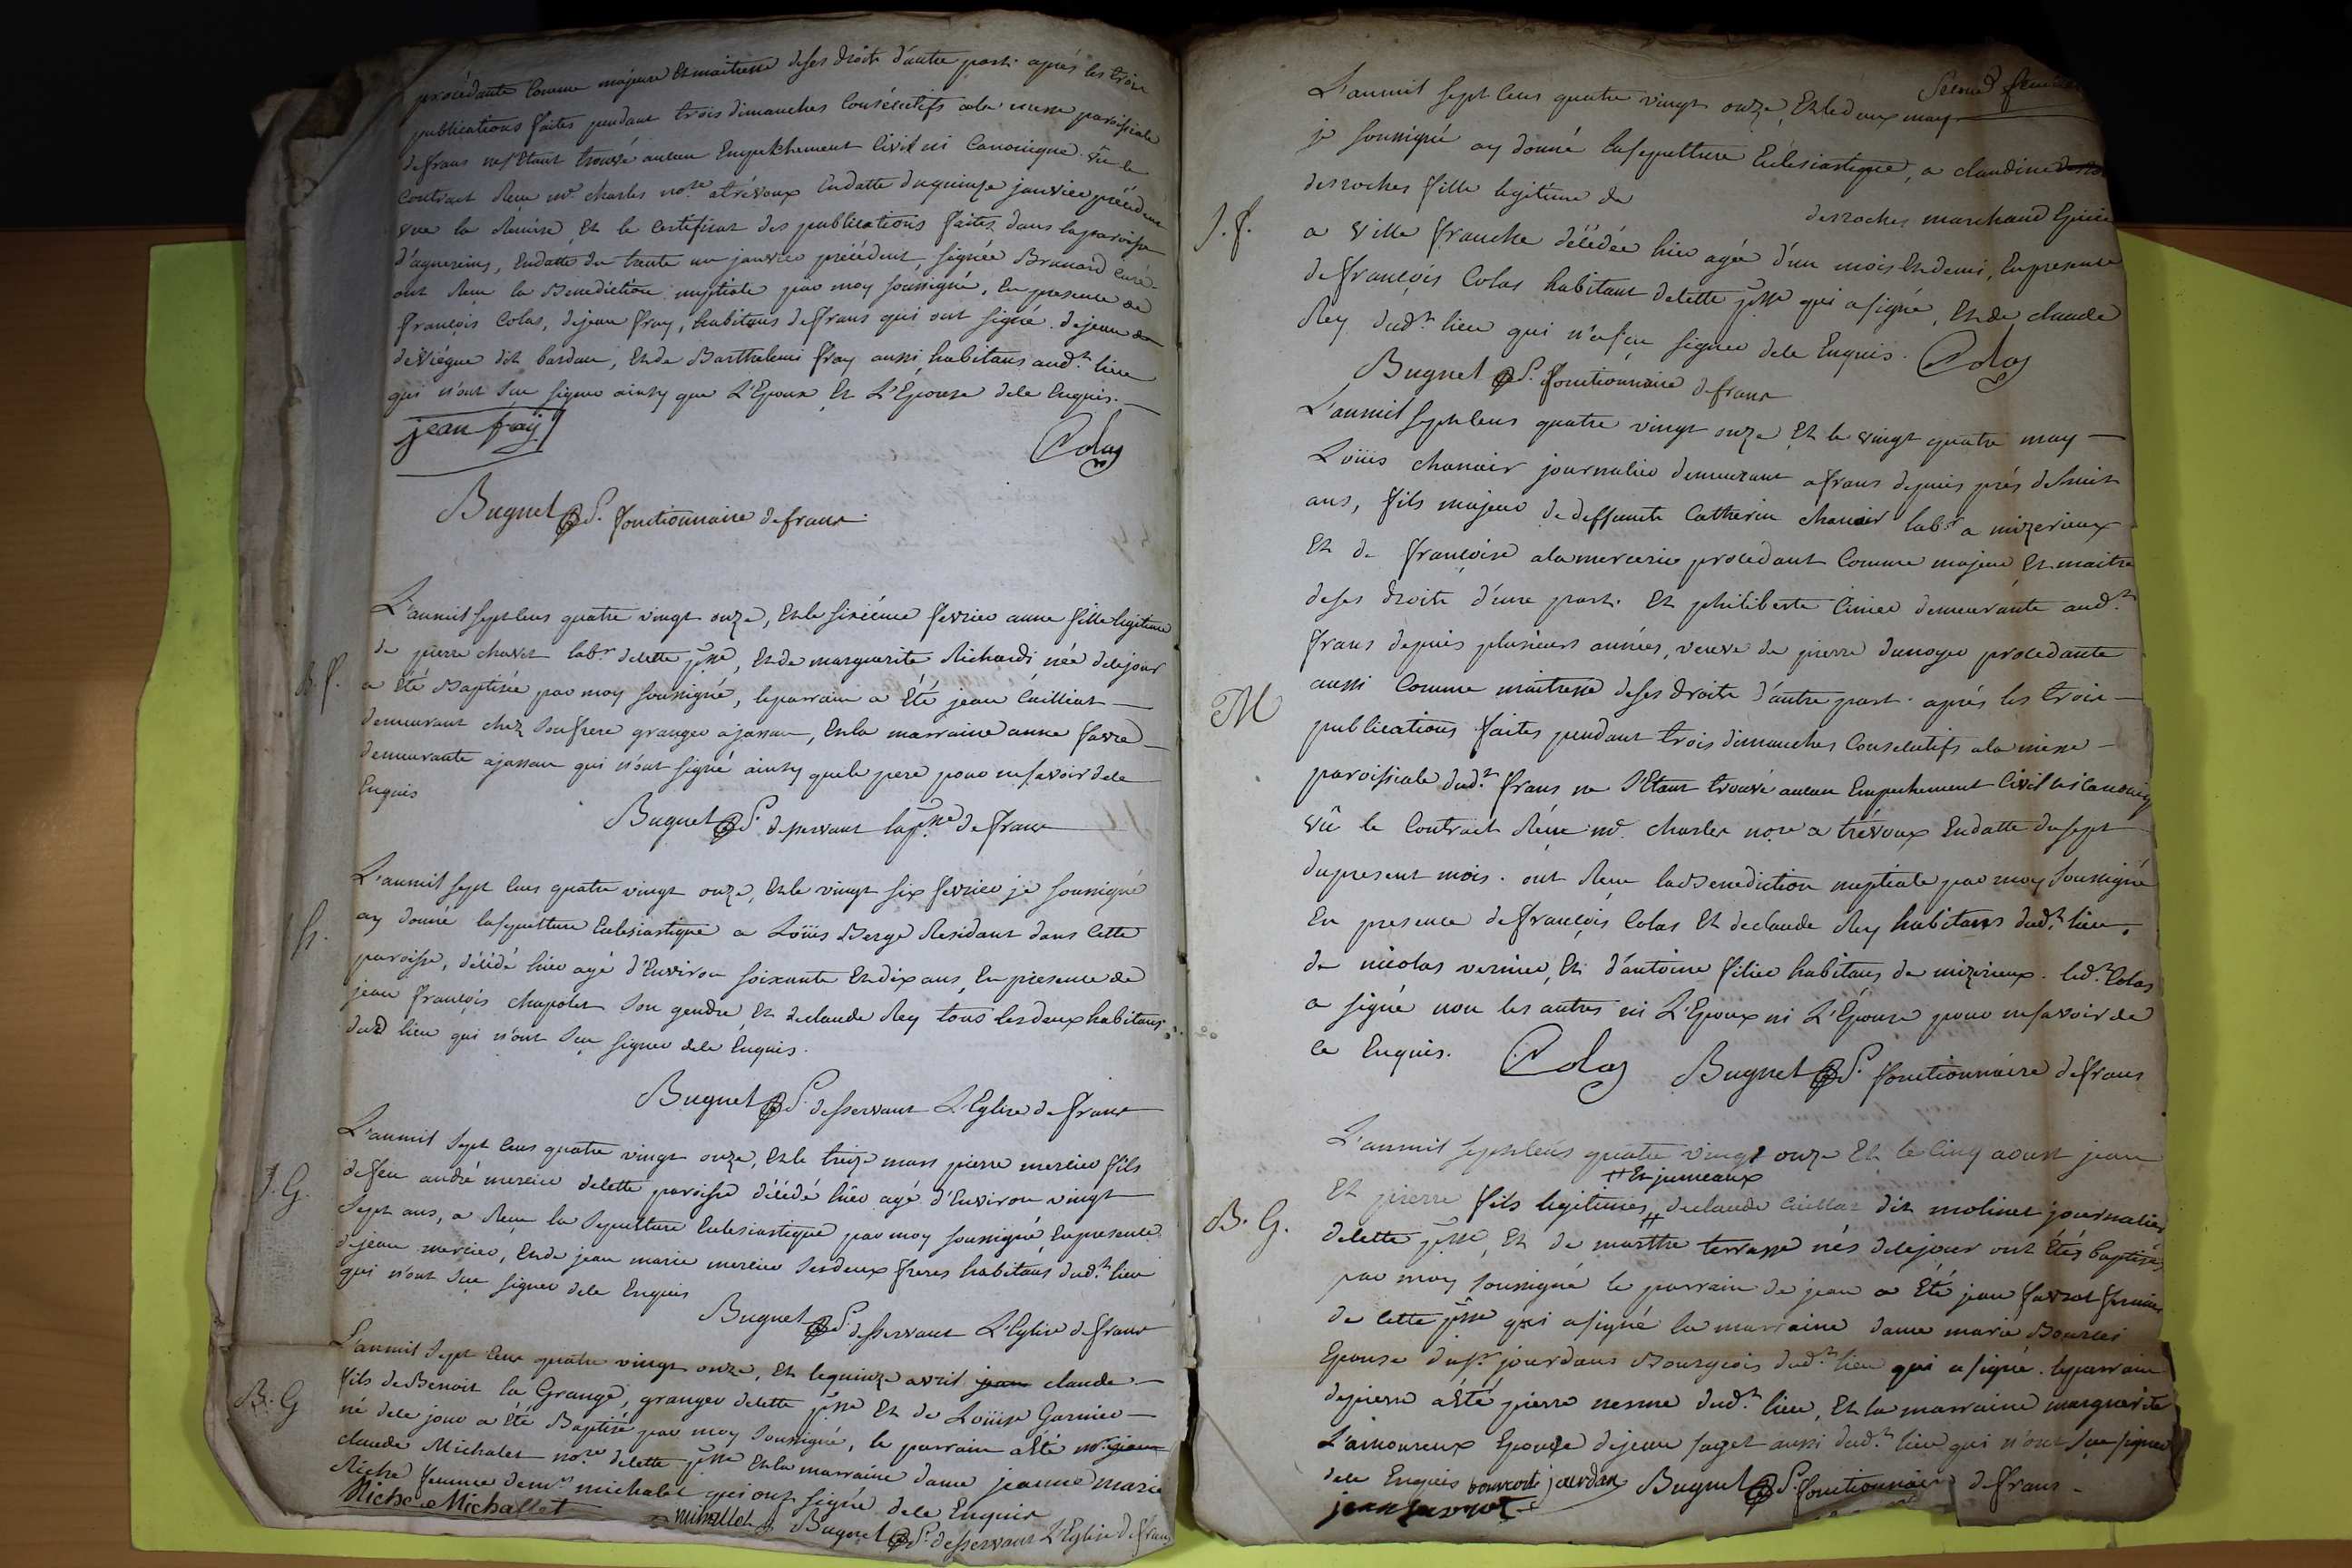 procédante Comme majeure Et maitresse deses droits d'autre part. aprés les trois
publications faites pendant trois dimanches Consécutifs ala messe paroissiale
defrans nes'Etant trouvé aucun Empeckhement Civil ni Canonique. vû le
Contract Recu mr. charles nore. atrévoux Endatte duquinze janvier précédent
vue la Remise, Et le Certificat des publications faites dans laparoisse
d'aguereins, Endatte du trente un janvier précédent, signée Brunard Curé.
ont Recu la Benediction nuptiale par moy soussigné, En presence de
françois Colas, dejean fray, habitans defrans qui ont signé. dejean
deviégue dit bardan, Et de Barthelemi fray aussi habitans audt. lieu
qui n'ont Sçu signer ainsy que L'Epoux Et L'Epouse dele Enquis.
jean fraÿ
Colas
Buguet P. fonctionnaire defrans.
L'anmil septcens quatre vingt onze, Et le sixiéme fevrier anne fille legitime
de pierre chavet labr. delette psse, Et de marguerite Richardi née dele jour
B. f.
a Eté Baptisée par moy soussigné, leparrain a Eté jean Cailliat
demeurant chez Son frere granger ajassan, Et la marraine anne favre
demeurante ajassan qui n'ont signé ainsy quele pere pour nesavoir dele
Enquis
Buguet P. desservant lapsse de frans
L'anmil sept Cens quatre vingt onze, Et le vingt six fevrier je soussigné
ay donné lasepulture Eclesiastique a Loüis Berge Residant dans Cette
paroisse, décédé hier agé d'Environ soixante Et dix ans, En presence de
jean françois chapolet Son gendre, Et declaude Rey tous lesdeux habitans
dud lieu qui n'ont Sçu signer dele Enquis.
Buguet P. desservant L'Eglise de frans
L'anmil Sept Cens quatre vingt onze, Et le treize mars pierre mercier fils
S. G.
defeu andré mercier delette paroisse décédé hier agé d'Environ vingt
Sept ans, a Recu la Sepulture Eclesiastique par moy soussigné, En presence
dejean mercier, Et de jean marie mercier Ses deux freres habitans dudt. lieu
qui n'ont Sçu signer dele Enquis
Buguet P. desservant L'Eglise de frans
L'anmil Sept Cens quatre vingt onze, Et lequinze avril jean claude
B. G
fils de Benoit la Grange, granger delette psse Et de Loüise Garnier
né dele jour a Eté Baptisé par moy Soussigné, le parrain aEté mr. jean
claude Michalet nore. delette psse Et la marraine dame jeanne marie
Riche femme demr. michalet qui ont signé dele Enquis
Riche Michallet
michallet
Buguet P. desservant L'Eglise de frans
L'anmil sept Cens quatre vingt onze, Et ledeux may
je soussigné ay donné lasepulture Eclesiastique, a claudine
desroches fille legitime de desroches marchand Epicier
S. f.
a ville franche décédée hier agée d'un mois Et demi, En presence
de françois Colas habitant delette psse qui asigné, Et de claude
Rey dudt. lieu qui n'asçu signer dele Enquis.
Colas
Buguet P. fonctionnaire defrans
L'anmil septcens quatre vingt onze Et le vingt quatre may
Loüis chanair journalier demeurant afrans depuis prés dehuit
ans, fils majeur de deffunt Catherin chanair labr. a mizerieux
Et de françoise alamercerie procédant Comme majeur, Et maitre
deses droits d'une part. Et philiberte Cinier demeurante audt.
frans depuis plusieurs années, veuve de pierre dunoyer procedante
M
aussi Comme maitresse deses droits d'autre part. aprés les trois
publications faites pendant trois dimanches Consecutifs ala messe
paroissiale dudt. frans ne S'Etant trouvé aucun Empechement Civil ni canoniq
vû le Contract Recu mr. charles nore a trévoux Endatte dusept
dupresent mois. ont Recu la Benediction nuptiale par moy Soussigné
En presence defrançois Colas Et declaude Rey habitans dudt. lieu,
de nicolas vernier, Et d'antoine filier habitans de mizerieux. ledt. Colas
a signé non les autres ni L'Epoux ni L'Epouse pour nesavoir de
ce Enquis.
Colas
Buguet P. fonctionnaire defrans
L'anmil septcens quatre vingt onze Et le Cinq aoust jean
++ Et jumeaux
Et pierre fils legitimes ++ declaude Caillat dit molinet journalier
B. G.
delette psse, Et de marthe terrasse nés dele jour ont Etés baptisés
par moy soussigné le parrain de jean a Eté jean favrot fermier
de Cette psse qui asigné la marraine dame marie Bourcet
Epouse dusr. jourdans Bourgeois dudt. lieu qui a signé. leparrain
depierre aEté pierre nesme dudt. lieu, Et la marraine marguerite
L'amoureux Epouse dejean sayet aussi dudt. lieu qui n'ont Sçu signer
dele Enquis
jourdan
Buguet P. fonctionnaire defrans
jean favrot